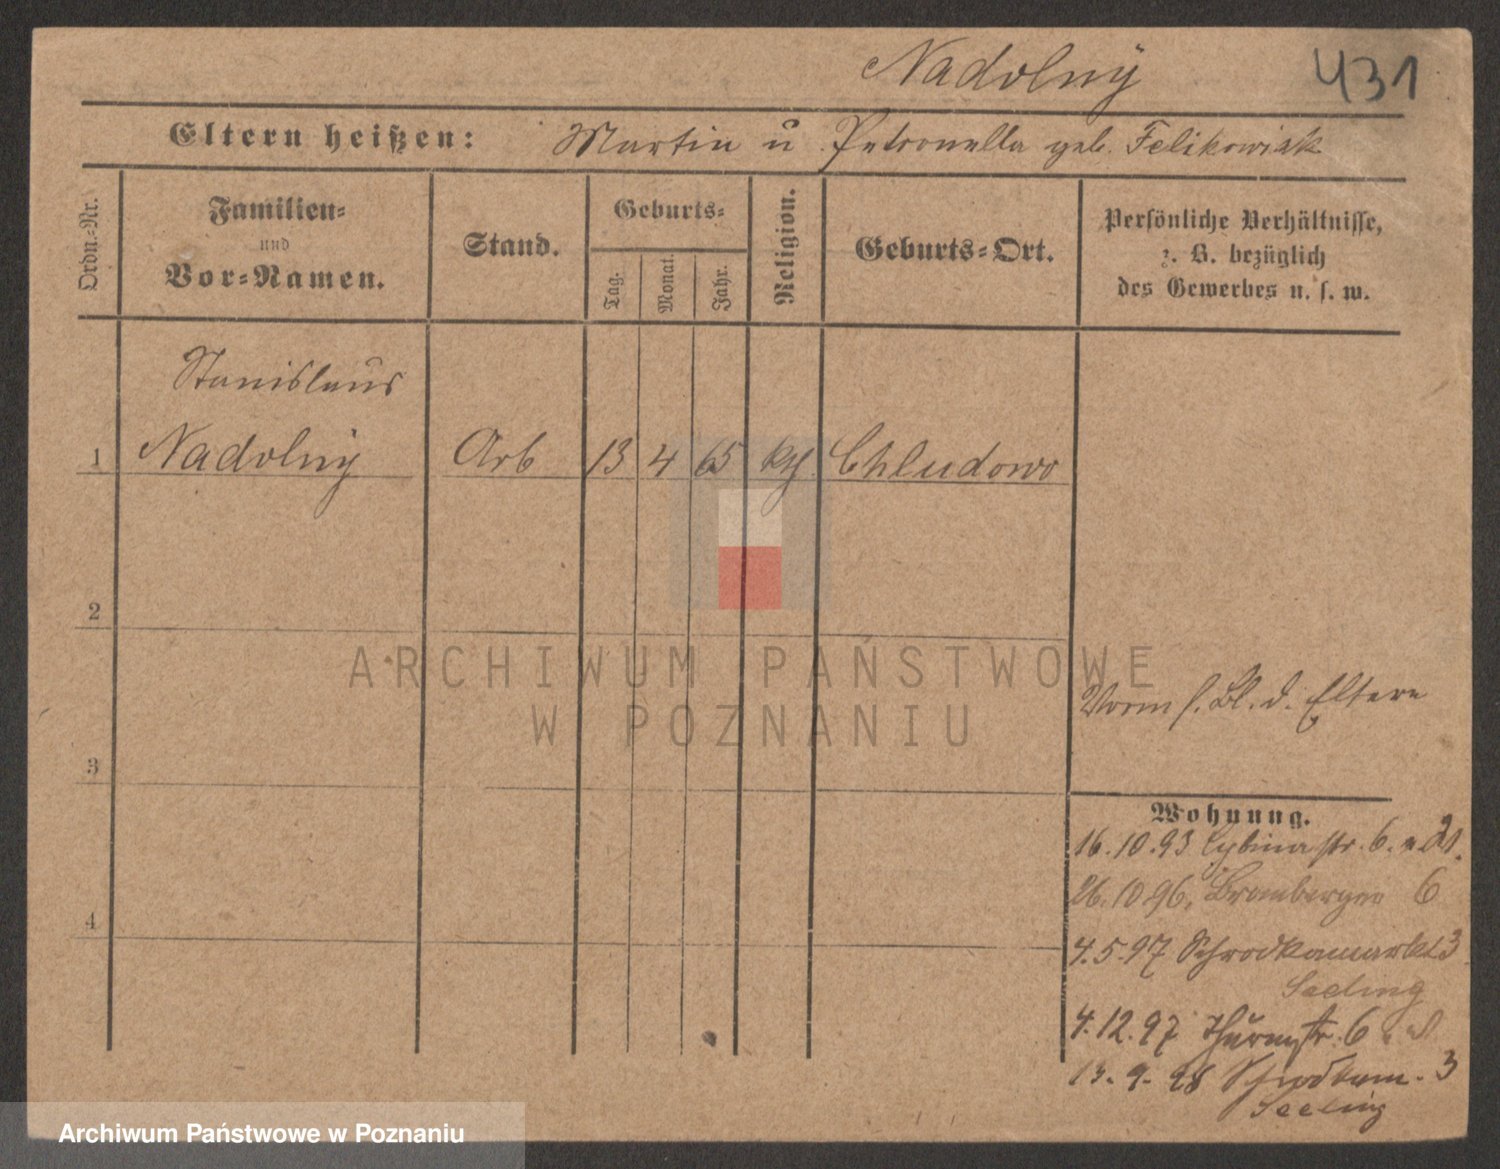 Nadolny 431
Eltern heißen: Martin u Petronella geb. Felikowiak
Ordn.-Nr. Familien- und Vor-Namen. Stand. Geburts- Tag. Monat. Jahr. Religion. Geburts-Ort. Persönliche Verhältnisse, z. B. bezüglich des Gewerbes u. s. w.
Stanislaus
1 Nadolny Arb 13 4 65 kth Chludowo
2
ARCHIWUM PAŃSTWOWE
W POZNANIU
Vorm s. Bl. d. Eltern
3
Wohnung.
16.10.93 Cybinastr. 6.
26.10 96, Bromberger 6
4
4.5.97 Schrodkamarkt 3
Seeling
4.12.97 Thurmstr. 6
13.9.98 Schrodkam. 3
Seeling
Archiwum Państwowe w Poznaniu